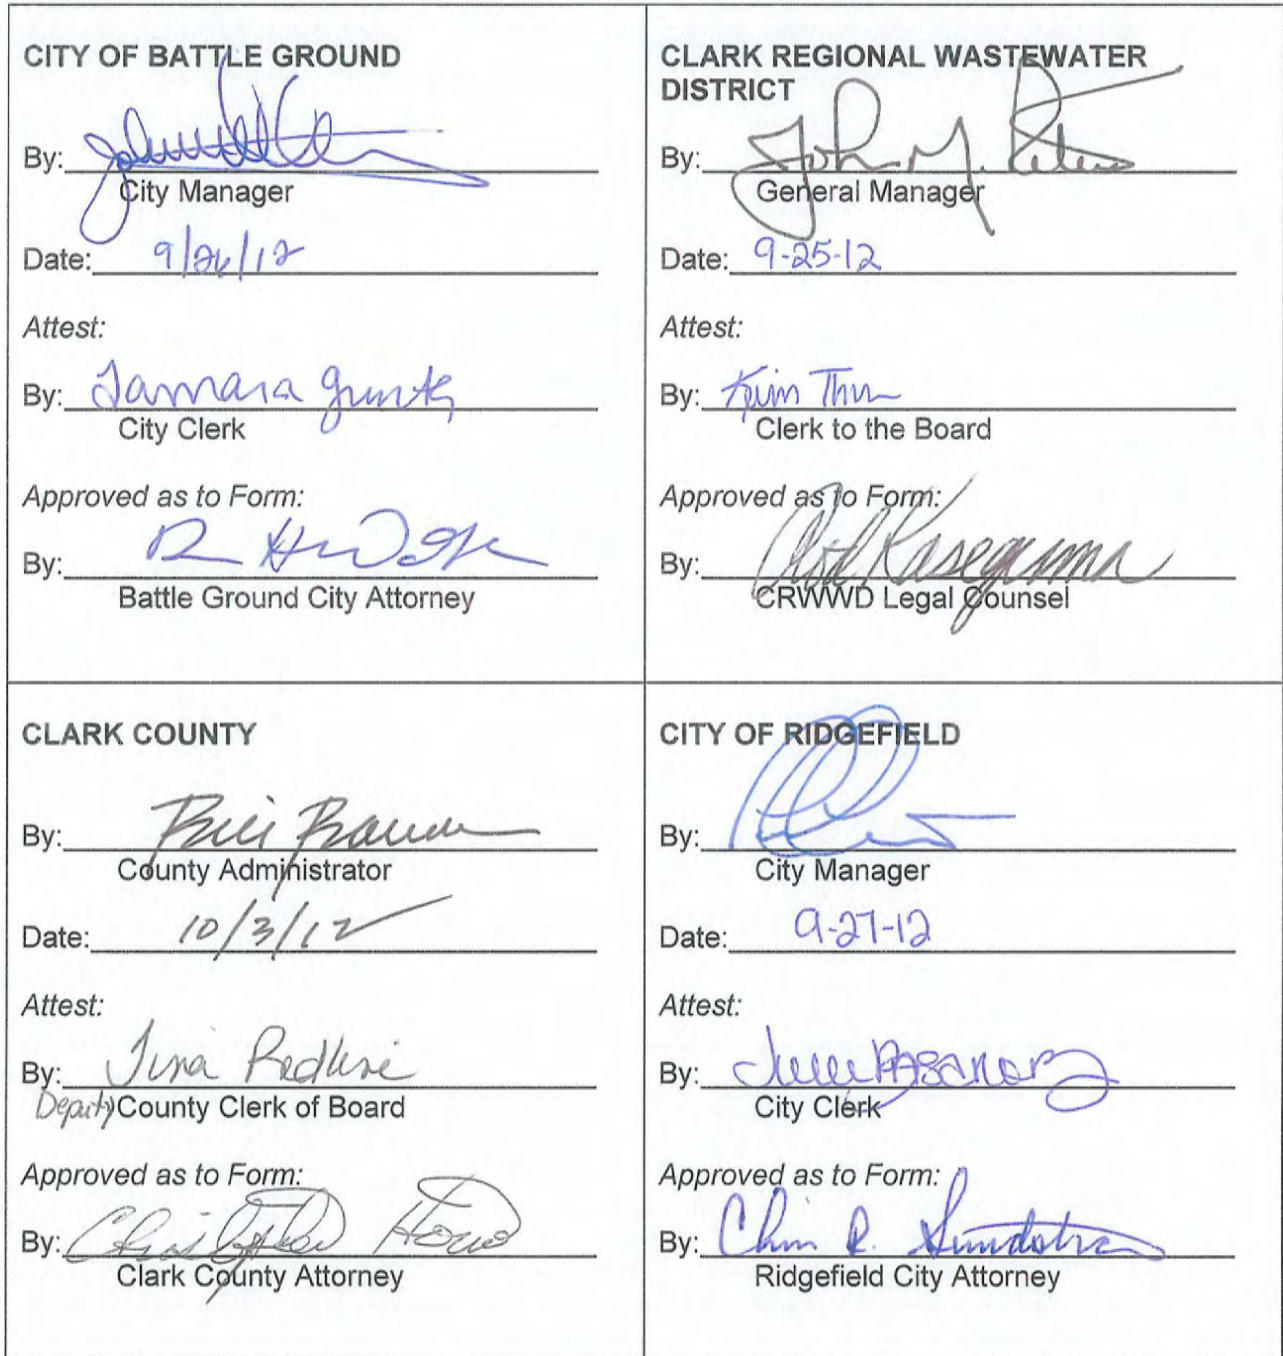 CITY OF BATTLE GROUND
By:
City Manager
Date: 9/26/12
Attest:
By: Tamara Gunter
City Clerk
Approved as to Form:
By:
Battle Ground City Attorney
CLARK REGIONAL WASTEWATER
DISTRICT
By: John M. Peterson
General Manager
Date: 9-25-12
Attest:
By: Kim Thur
Clerk to the Board
Approved as to Form:
By: Rod Kaseguma
CRWWD Legal Counsel
CLARK COUNTY
By: Bill Barron
County Administrator
Date: 10/3/12
Attest:
By: Tina Redline
Deputy County Clerk of Board
Approved as to Form:
By: Christopher Horne
Clark County Attorney
CITY OF RIDGEFIELD
By:
City Manager
Date: 9-27-12
Attest:
By:
City Clerk
Approved as to Form:
By: R. Sundstrom
Ridgefield City Attorney